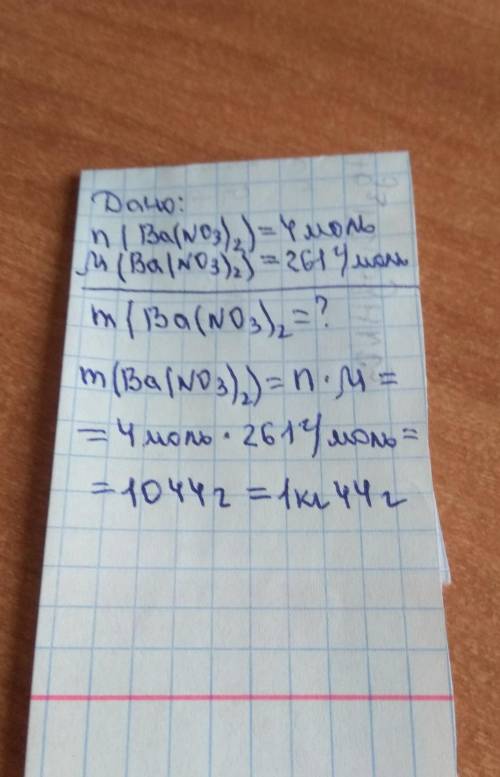 Дано:
n(Ba(NO3)2)=4моль
M(Ba(NO3)2)=261г/моль
m(Ba(NO3)2=?
m(Ba(NO3)2)=n·M=
=4моль·261г/моль=
=1044г=1кг44г